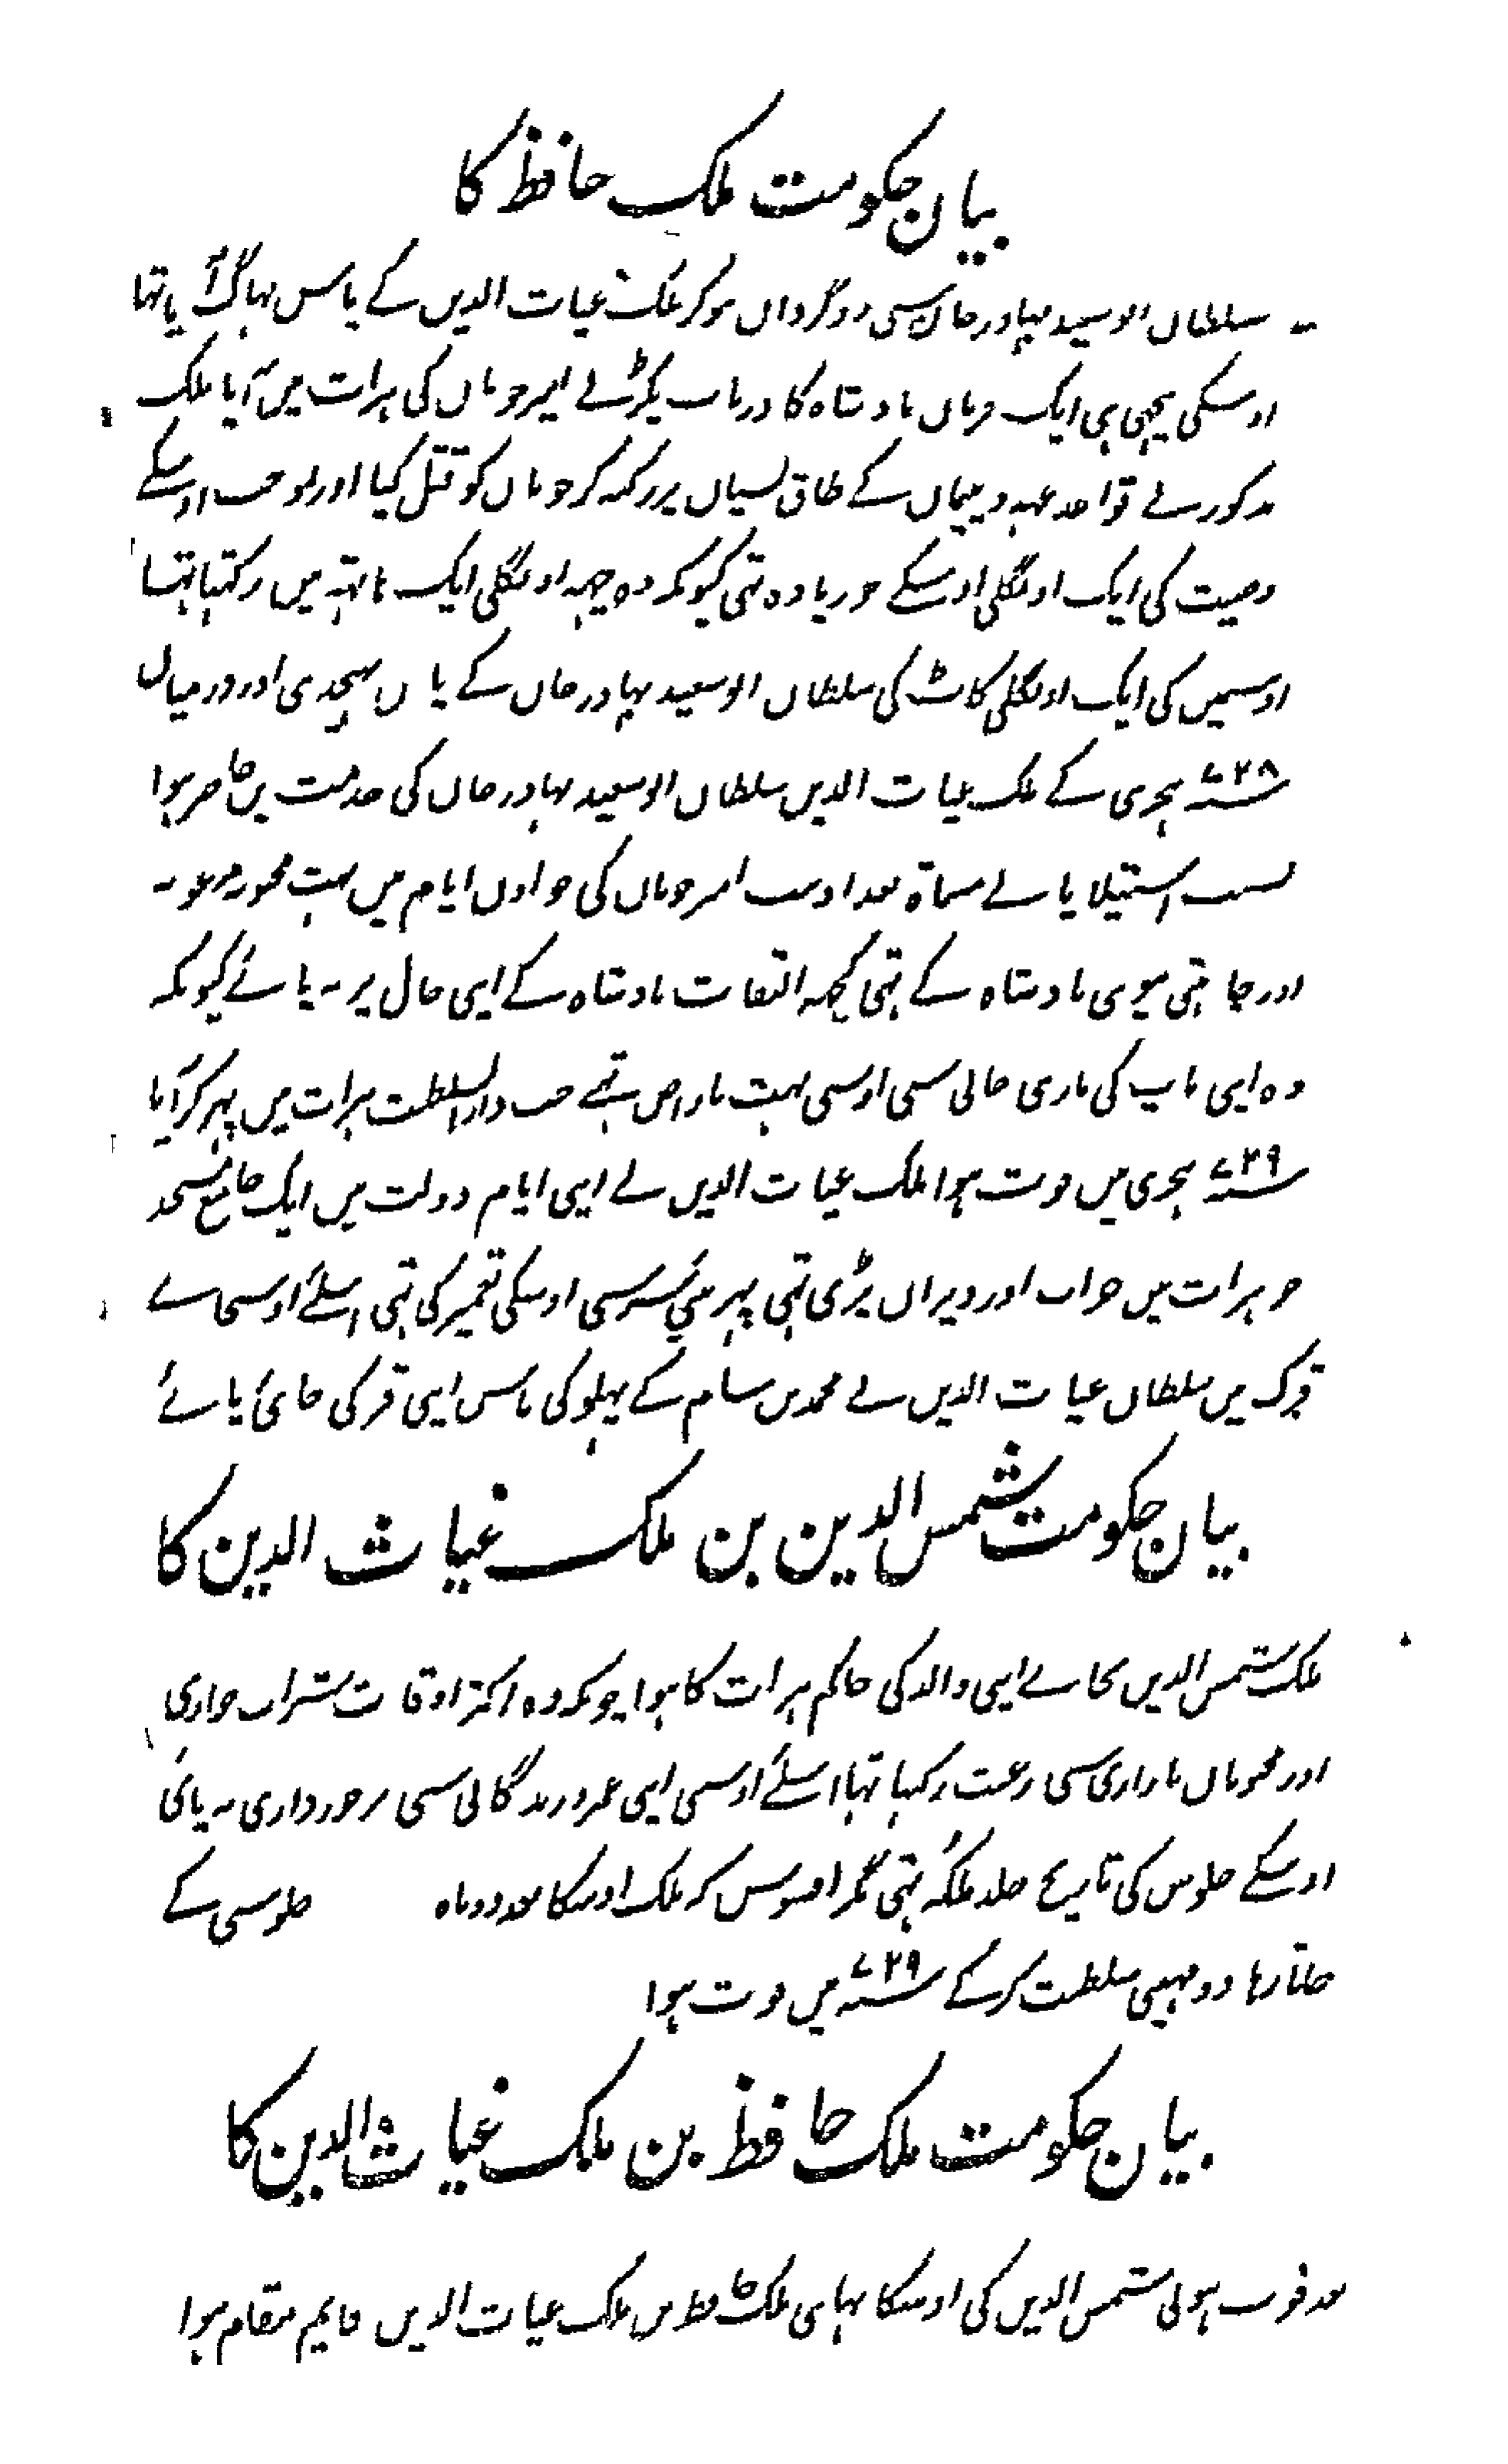 بیان حکومت ملک حافظ کا
سلطان ابو سعید بہادر خان سی روگرداں ہو کر ملک غیاث الدین کے پاس بہاگ آیا تہا
اوسکی پیچہی ہی ایک فرمان بادشاہ کا درباب پکڑنے امیر چوبان کی ہرات میں آیا ملک
مذکور نے قواعد عہد و پیمان کے طاق نسیان پر رکہہ کر چوبان کو قتل کیا اور بموجب اوسکے
وصیت کی ایک اونگلی اوسکے جو زیادہ تہی کیونکہ وہ چہہ اونگلی ایک ہاتہہ میں رکہتا تہا
اوسمیں کی ایک اونگلی کاٹ کی سلطان ابو سعید بہادر خان کے پاس بہیجدی اور درمیان
سنہ ۷۲۸ ہجری کے ملک غیاث الدین سلطان ابو سعید بہادر خان کی خدمت میں حاضر ہوا
بسبب استیلا پانے مسماة بغداد بنت امیر چوبان کی جو اون ایام میں بہت محبوبہ مرغوبہ
اور چاہتی بیوی بادشاہ کے تہی کچہہ التفات بادشاہ کے اپنی حال پر نہ پائے کیونکہ
وہ اپنی باپ کی ماری جانی سی اوسی بہت ناراض تہے جب دار السلطنت ہرات میں پہر کر آیا
سنہ ۷۲۹ ہجری میں فوت ہوا ملک غیاث الدین نے اپنی ایام دولت میں ایک جامع مسجد
جو ہرات میں خراب اور ویران پڑی تہی پہر نئی سرسی اوسکی تعمیر کی تہی اسلئے اوسی نے
میں سلطان غیاث الدین نے محمد بن سام کے پہلو کی پاس اپنی قبر کی جائ پائے
بیان حکومت شمس الدین بن ملک غیاث الدین کا
ملک شمس الدین بجائے اپنی والد کی حاکم ہرات کا ہوا چونکہ وہ اکثر اوقات شراب خواری
اور محبوبان بازاری سی رغبت رکہتا تہا اسلئے اوسی اپنی عمر و زندگانی سی برخورداری نہ پائی
اوسکے جلوس کی تاریخ خلد ملکہ تہی مگر افسوس کہ ملک اوسکا بعد دو ماہ جلوسی کے
جاتا رہا دو مہینی سلطنت کرکے سنہ ۷۲۹ میں فوت ہوا
بیان حکومت ملک حافظ بن ملک غیاث الدین کا
بعد فوت ہونی شمس الدین کی اوسکا بہائی ملک حافظ بن ملک غیاث الدین قایم مقام ہوا